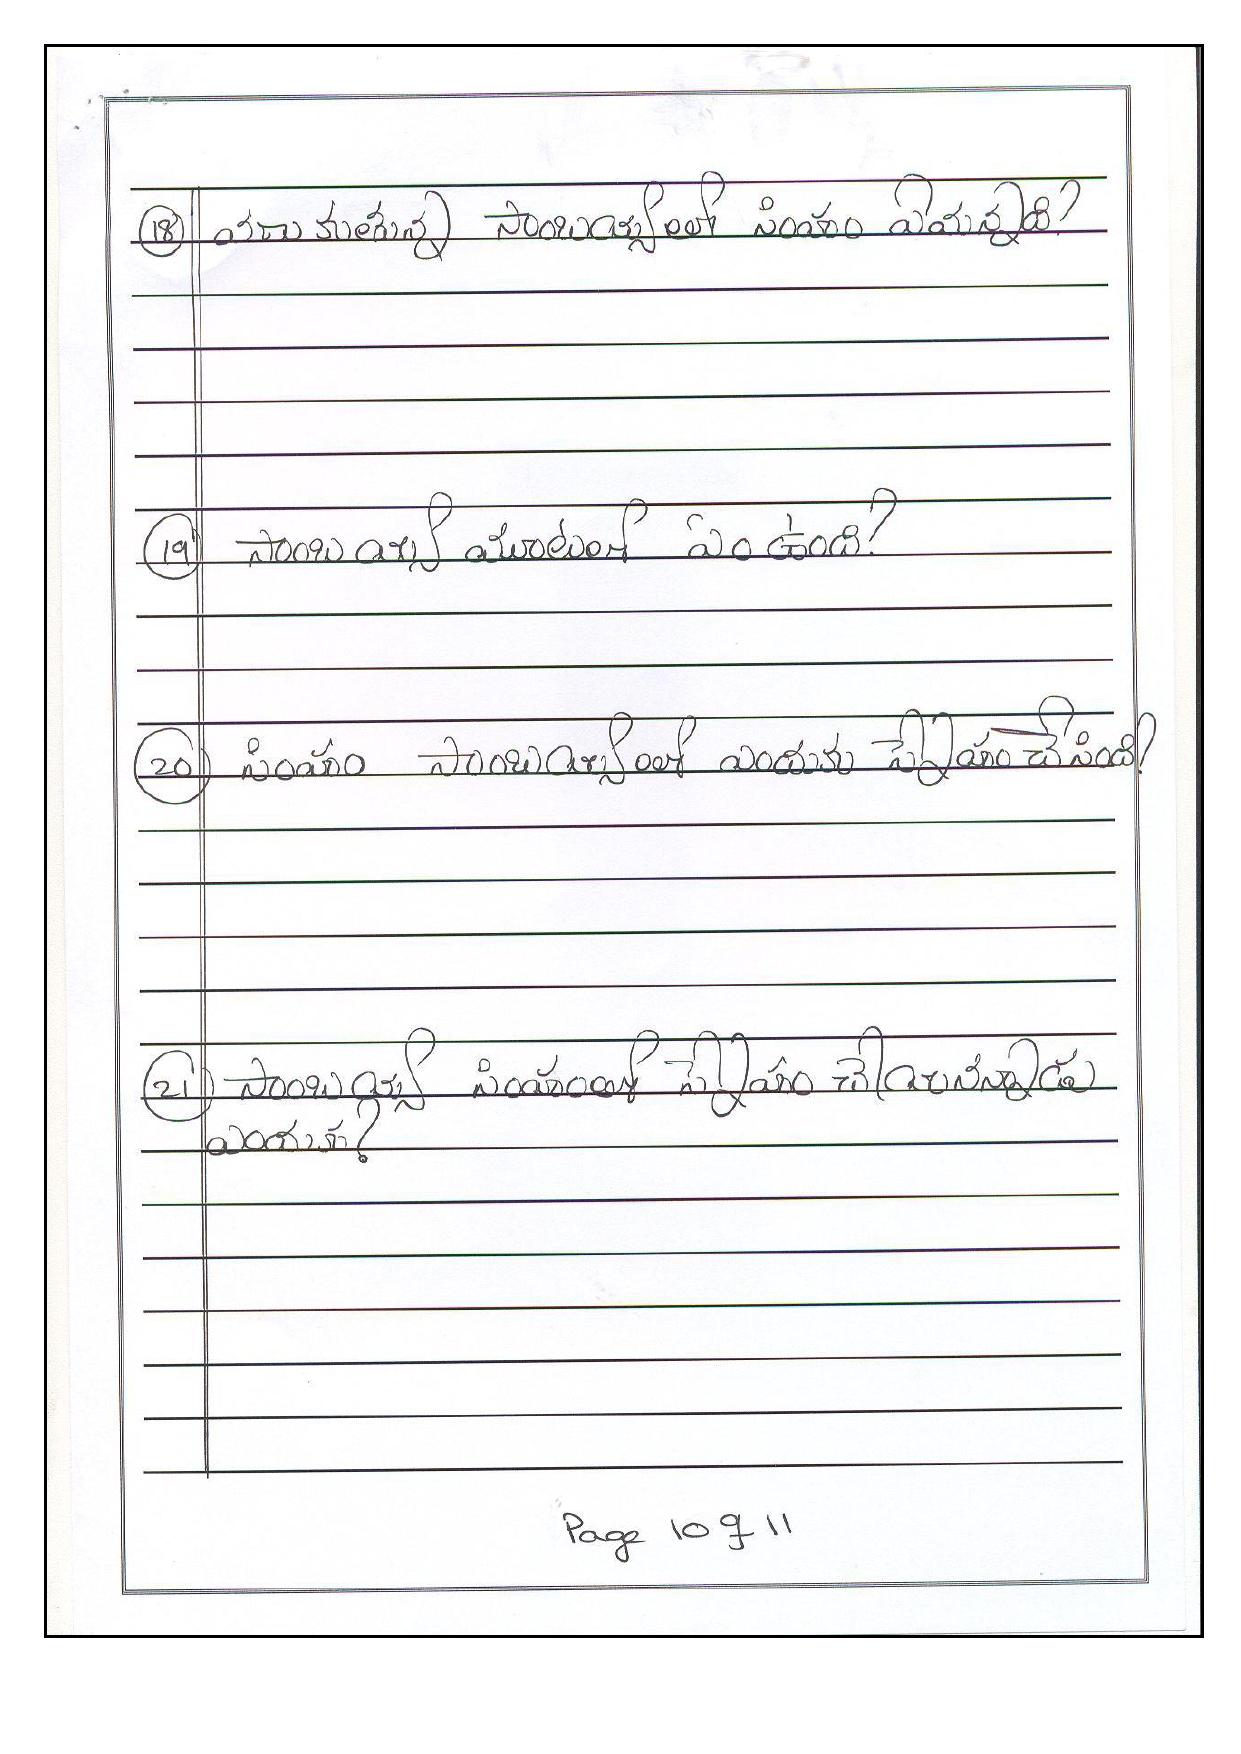 18 పరుగులిడుతున్న సాంబయ్యతో సింహం ఏమన్నది?
19 సాంబయ్య మూటలో ఏం ఉంది?
20 సింహం సాంబయ్యతో ఎందుకు స్నేహం చేసింది?
21 సాంబయ్య సింహంతో స్నేహం చేయనన్నాడు
ఎందుకు?
Page 10 of 11